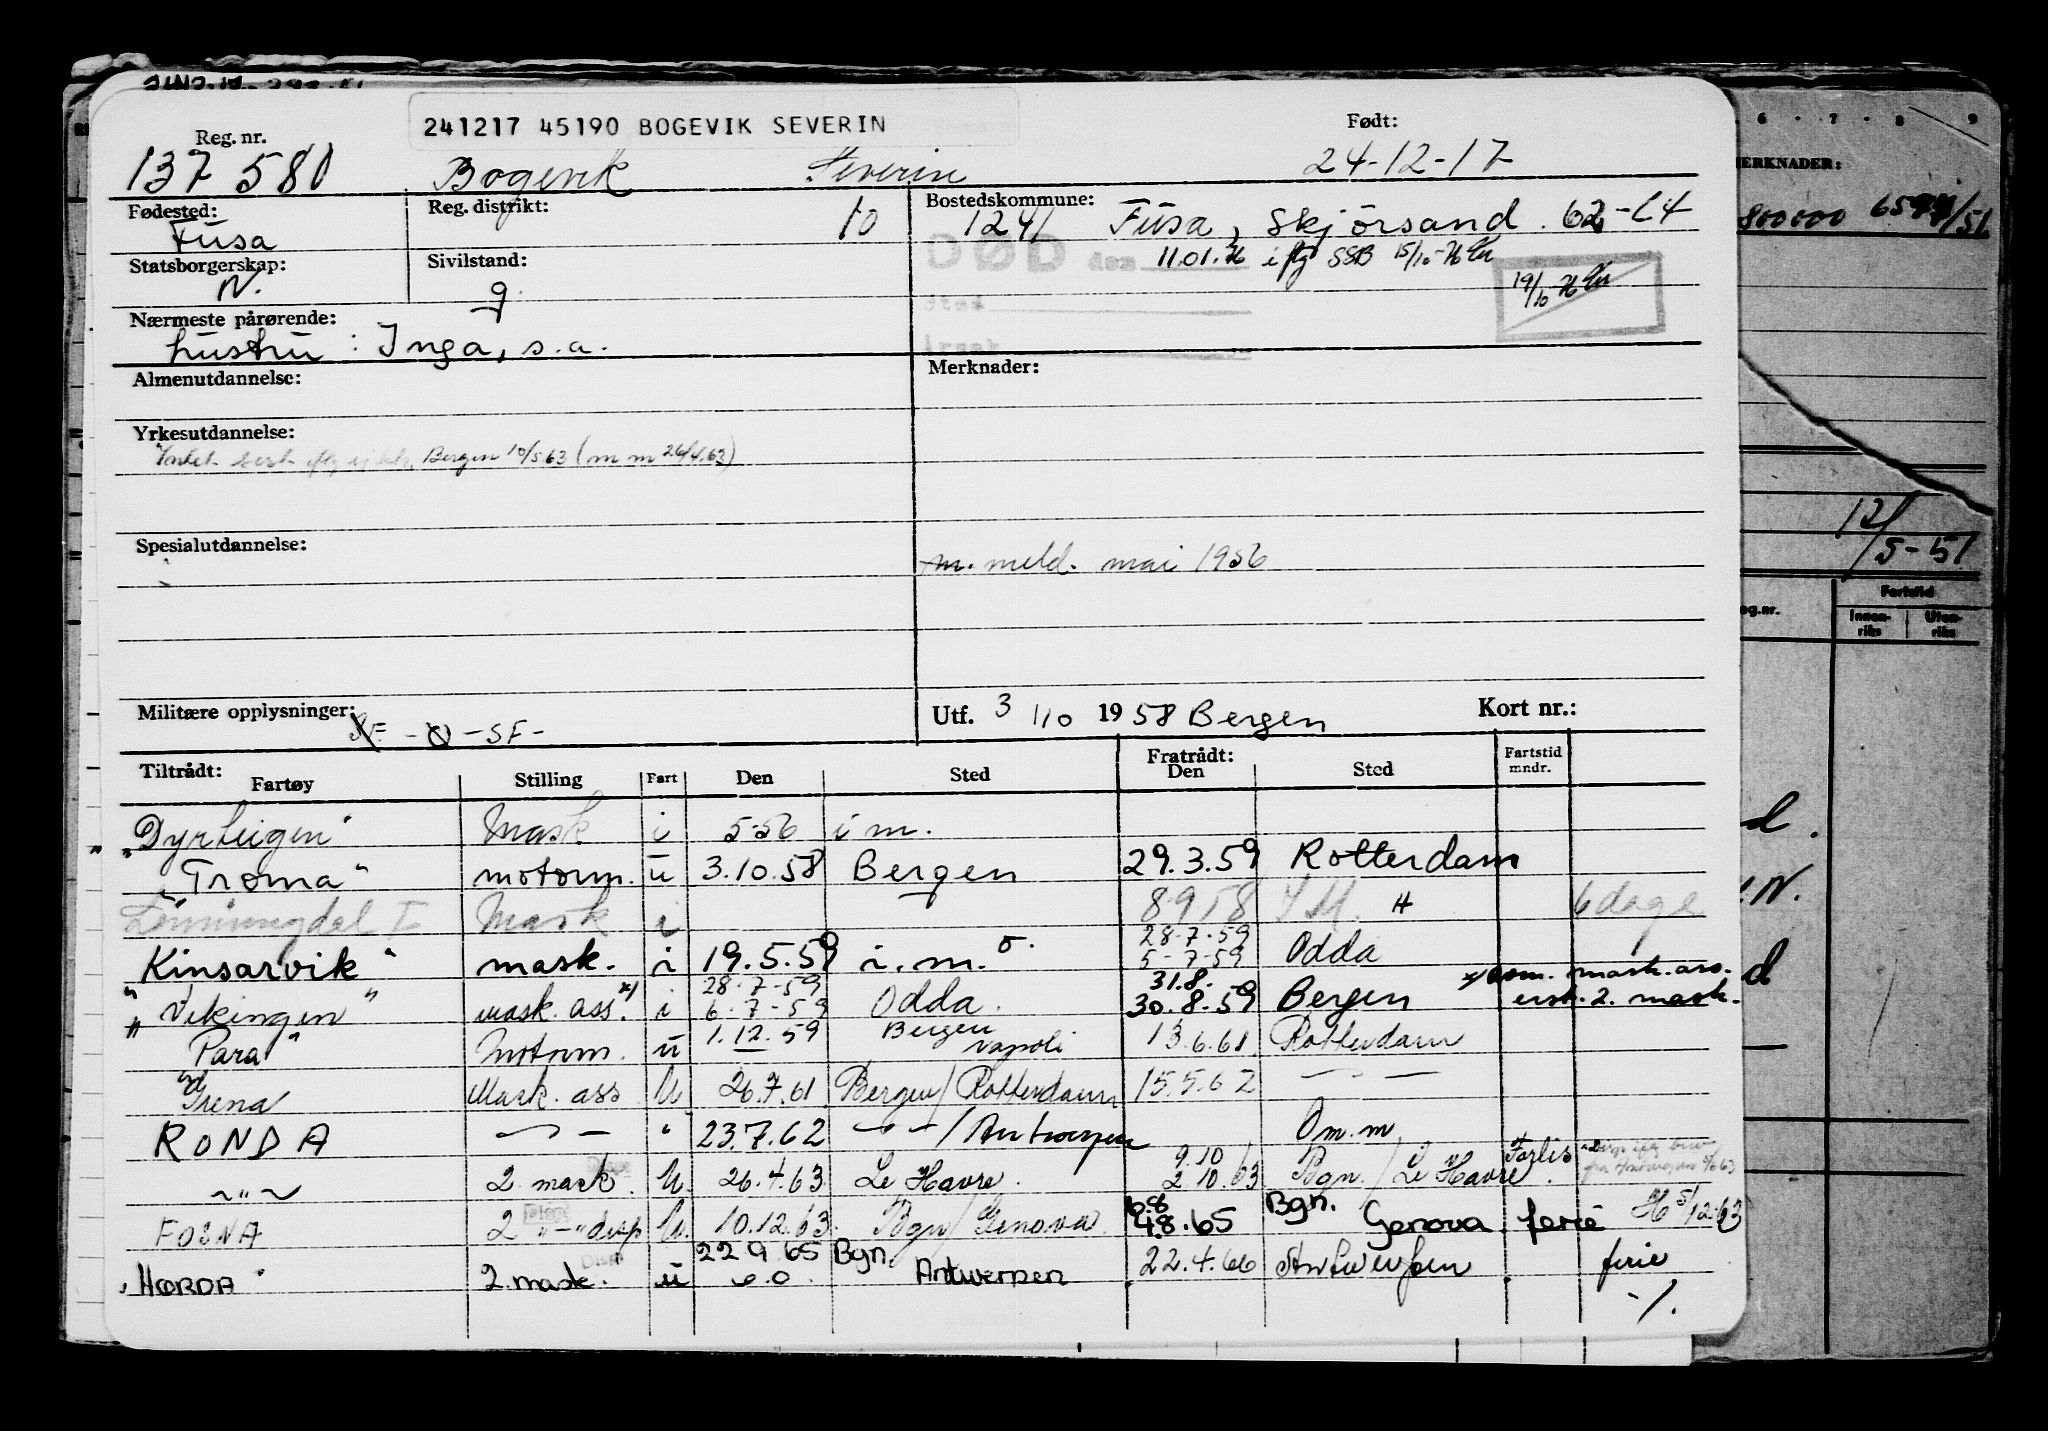 241217 45190 BOGEVIK SEVERIN
Reg. nr.
Født:
137 580 Bogevik Severin 24-12-17
Fødested: Fusa
Reg. distrikt: 10
Bostedskommune: 1241 Fusa, Skjørsand. 62-64
DØD den 11.01.76 iflg SSB 15/10-76
19/10-76
Statsborgerskap: N.
Sivilstand: g
Nærmeste pårørende:
hustru: Inga, s.a.
Almenutdannelse:
Merknader:
Yrkesutdannelse:
Bergen 10/5.63 (m m 26/4.63)
Spesialutdannelse:
m. meld. mai 1956
Militære opplysninger: SF - O - SF -
Utf. 3/10 1958 Bergen
Kort nr.:
Tiltrådt:
Fratrådt:
Fartøy Stilling Fart Den Sted Den Sted Fartstid mndr.
"Dyrteigen" Mask i 5-56 i m.
"Troma" motorm. u 3.10.58 Bergen 29.3.59 Rotterdam
Lønningdal I Mask i 8-9 58 I M. H 6 dage
28-7-59
"Kinsarvik" mask. i 19.5.59 i.m. o. 5-7-59 Odda
28-7-59 31.8.
"Vikingen" mask. ass. x) i 6-7-59 Odda. 30.8.59 Bergen
x) om. mask. ass.
ersk. 2. mask.
"Para" Motorm. u 1.12.59 Bergen Napoli 13.6.61 Rotterdam
"Irena" Mask. ass U 26.7.61 Bergen/Rotterdam 15.5.62 — " —
RONDA — " — " 23.7.62 — " — / Antwerpen Om.m
— " — 2 mask. U. 26.4.63 Le Havre. 9.10 2 10.63 Bgn. / Le Havre. Forlis
FOSNA 2 — " — disp U. 10.12.63. Bgn/Genova. 6.8 4.8.65 Bgn. Genova. ferie H 5/12.63
"HORDA" 2. mask. u 22 9 65 Bgn. Antwerpen 22.4.66 Antwerpen ferie
-/.
MERKNADER:
800000 6544/51
12/5-51
Fartstid
Reg.nr. Innen-riks Uten-riks